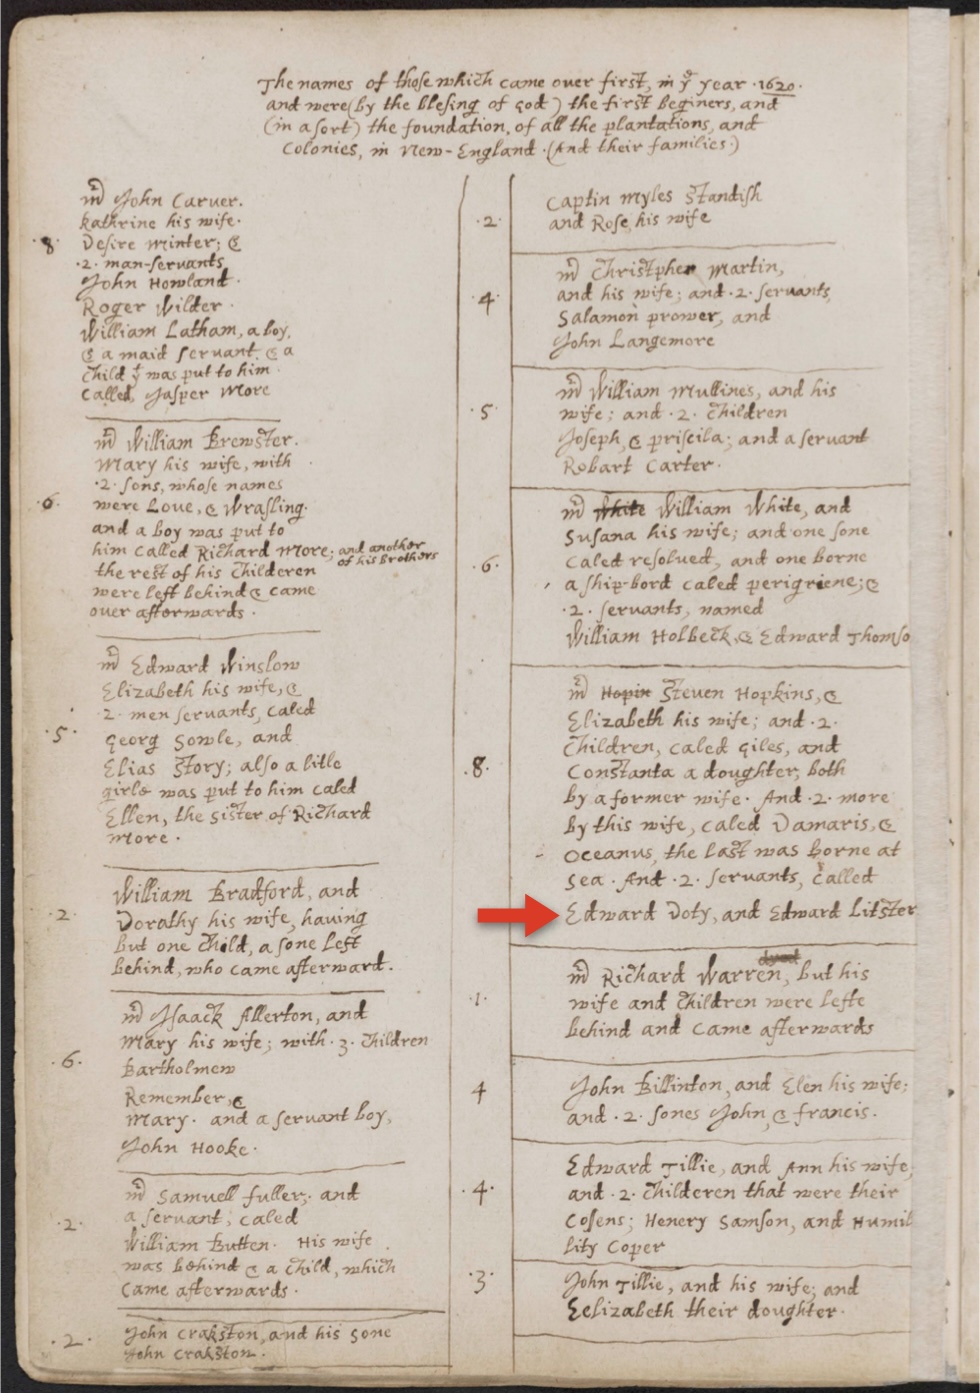 The names of those which came over first, in yͤ year .1620.
and were (by the blesing of god) the first beginers, and
(in a sort) the foundation, of all the plantations, and
Colonies, in New-England. (And their families.)
8.
mͬ John Carver.
kathrine his wife.
Desire Minter; &
.2. man-servants
John Howland.
Roger Wilder.
William Latham, a boy,
& a maid servant. & a
child yͭ was put to him
called, Jasper More
.6.
mͬ William Brewster.
Mary his wife, with
.2. sons, whose names
were Love, & Wrasling.
and a boy was put to
him called Richard More; and another
of his brothers
the rest of his childeren
were left behind & came
over afterwards.
.5.
mͬ Edward Winslow
Elizabeth his wife, &
.2. men servants, caled
Georg Sowle, and
Elias Story; also a litle
girle was put to him caled
Ellen, the sister of Richard
More.
.2.
William Bradford, and
Dorathy his wife, having
but one child, a sone left
behind, who came afterward.
.6.
mͬ Isaack Allerton, and
Mary his wife; with .3. children
Bartholmew
Remember, &
Mary. and a servant boy,
John Hooke.
.2.
mͬ Samuell fuller; and
a servant, caled
William Butten. His wife
was behind & a child, which
came afterwards.
.2.
John Crakston, and his sone
John Crakston.
.2.
Captin Myles Standish
and Rose, his wife
4.
mͬ Christpher Martin,
and his wife; and .2. servants,
Salamon prower, and
John Langemore
.5.
mͬ William Mullines, and his
wife; and .2. children
Joseph, & priscila; and a servant
Robart Carter.
.6.
mͬ White William White, and
Susana his wife; and one sone
caled resolved, and one borne
a ship-bord caled perigriene; &
.2. servants, named
William Holbeck, & Edward Thomso
.8.
mͬ Hopin Steven Hopkins, &
Elizabeth his wife; and .2.
children, caled Giles, and
Constanta a doughter, both
by a former wife. And .2. more
by this wife, caled Damaris, &
Oceanus, the last was borne at
sea. And .2. servants, called
Edward Doty, and Edward Litster
.1.
dyed
mͬ Richard Warren, but his
wife and children were lefte
behind and came afterwards
4
John Billinton, and Elen his wife;
and .2. sones John, & francis.
.4.
Edward Tillie, and Ann his wife,
and .2. childeren that were their
Cosens; Henery Samson, and Humil
lity Coper
.3.
John Tillie, and his wife; and
Eelizabeth their doughter.